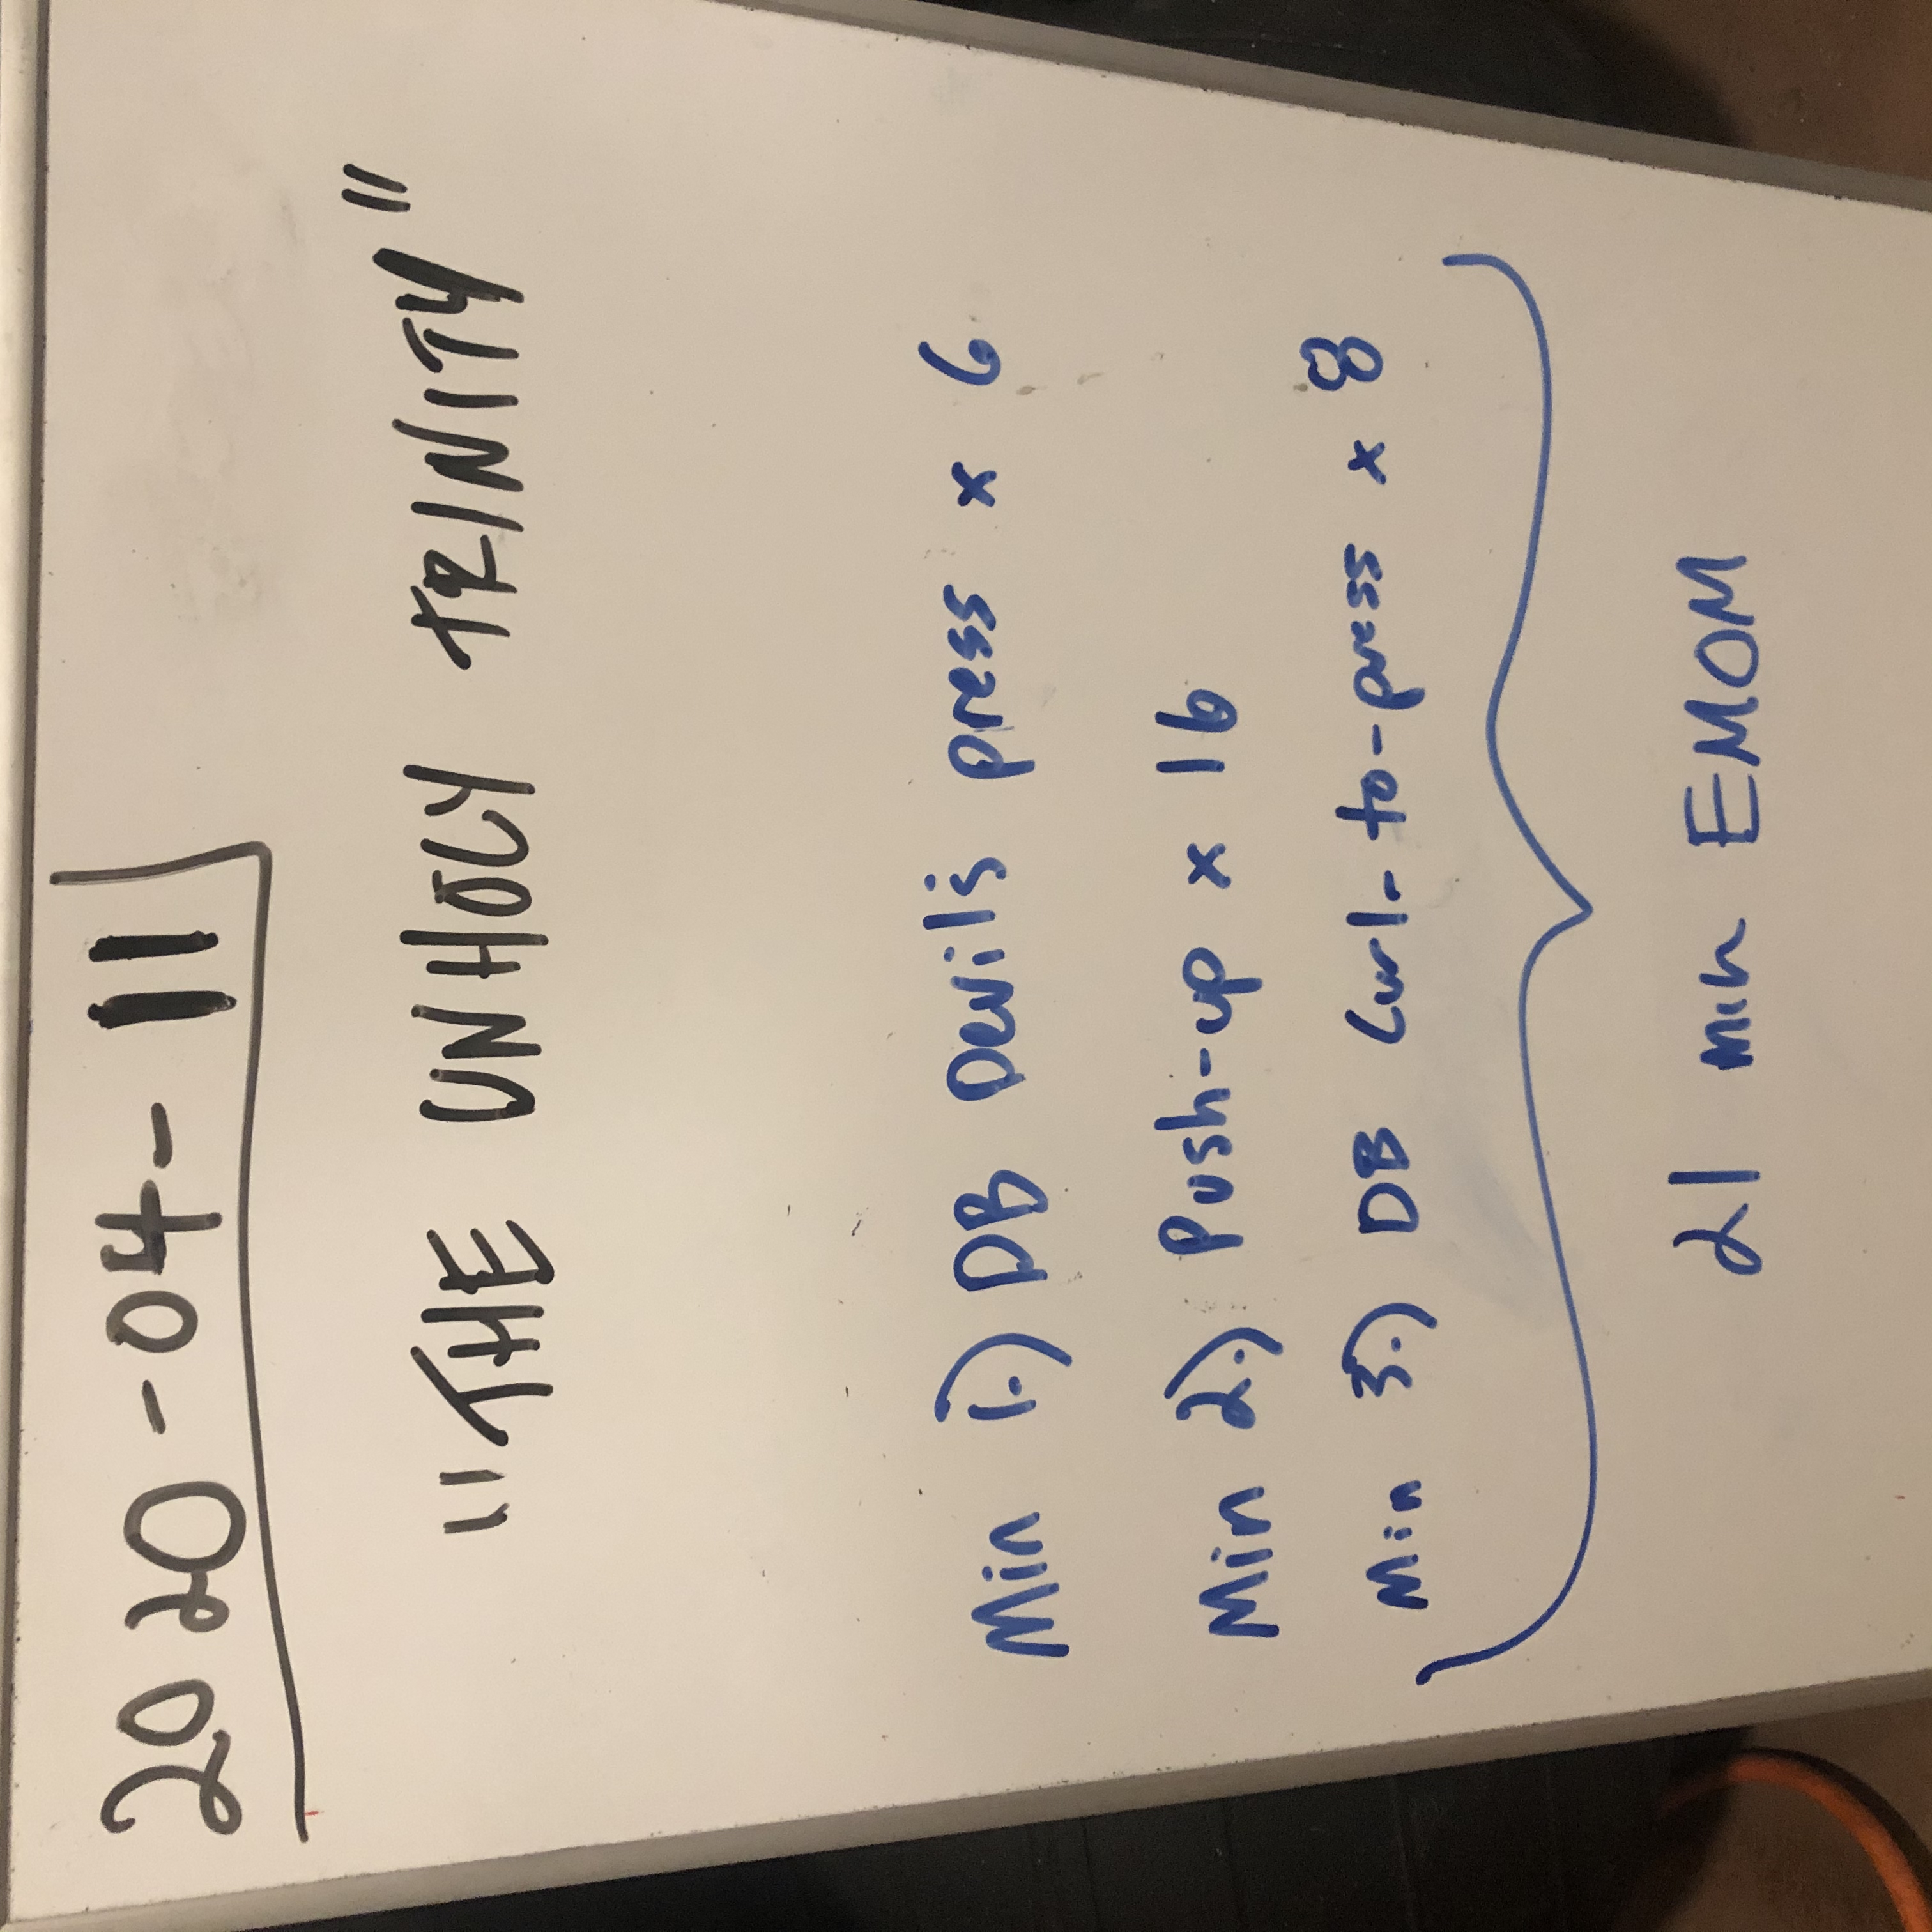 2020-04-11
"THE UNHOLY TRINITY"
Min 1.) DB Devil's press x 6
Min 2.) Push-up x 16
Min 3.) DB Curl-to-press x 8
21 min EMOM